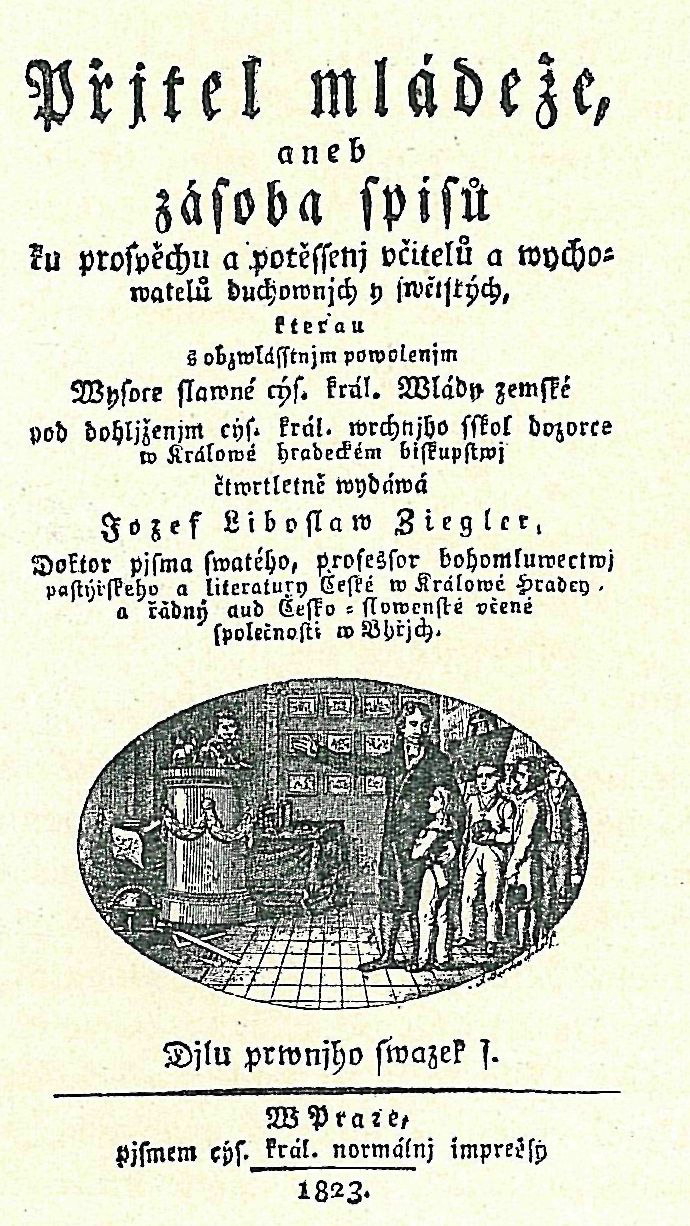 Přjtel mládeže,
aneb
zásoba spisů
ku prospěchu a potěssenj včitelů a wycho-
watelů duchownjch y swětských,
kterau
s obzwlásstnjm powolenjm
Wysoce slawné cýs. král. Wlády zemské
pod dohljženjm cýs. král. wrchnjho sskol dozorce
w Králowé hradeckém biskupstwj
čtwrtletně wydáwá
Jozef Liboslaw Ziegler,
Doktor pjsma swatého, professor bohomluwectwj
pastýřského a literatury České w Králowé Hradcy,
a řádný aud Česko-slowenské včené
společnosti w Vhřjch.
Djlu prwnjho swazek I.
W Praze,
pjsmem cýs. král. normálnj impressý
1823.